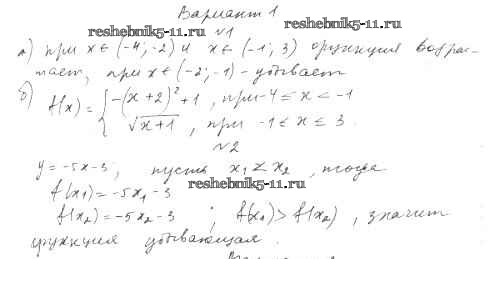 Вариант 1
reshebnik5-11.ru
№1
а) при x ∈ (-4; -2) и x ∈ (-1; 3) функция возрас-
тает, при x ∈ (-2; -1) - убывает
б) f(x) = { -(x+2)² + 1, при -4 ≤ x < -1
√(x+1), при -1 ≤ x ≤ 3
№2
y = -5x - 3; пусть x₁ < x₂, тогда
reshebnik5-11.ru
f(x₁) = -5x₁ - 3
f(x₂) = -5x₂ - 3; f(x₁) > f(x₂), значит
функция убывающая.